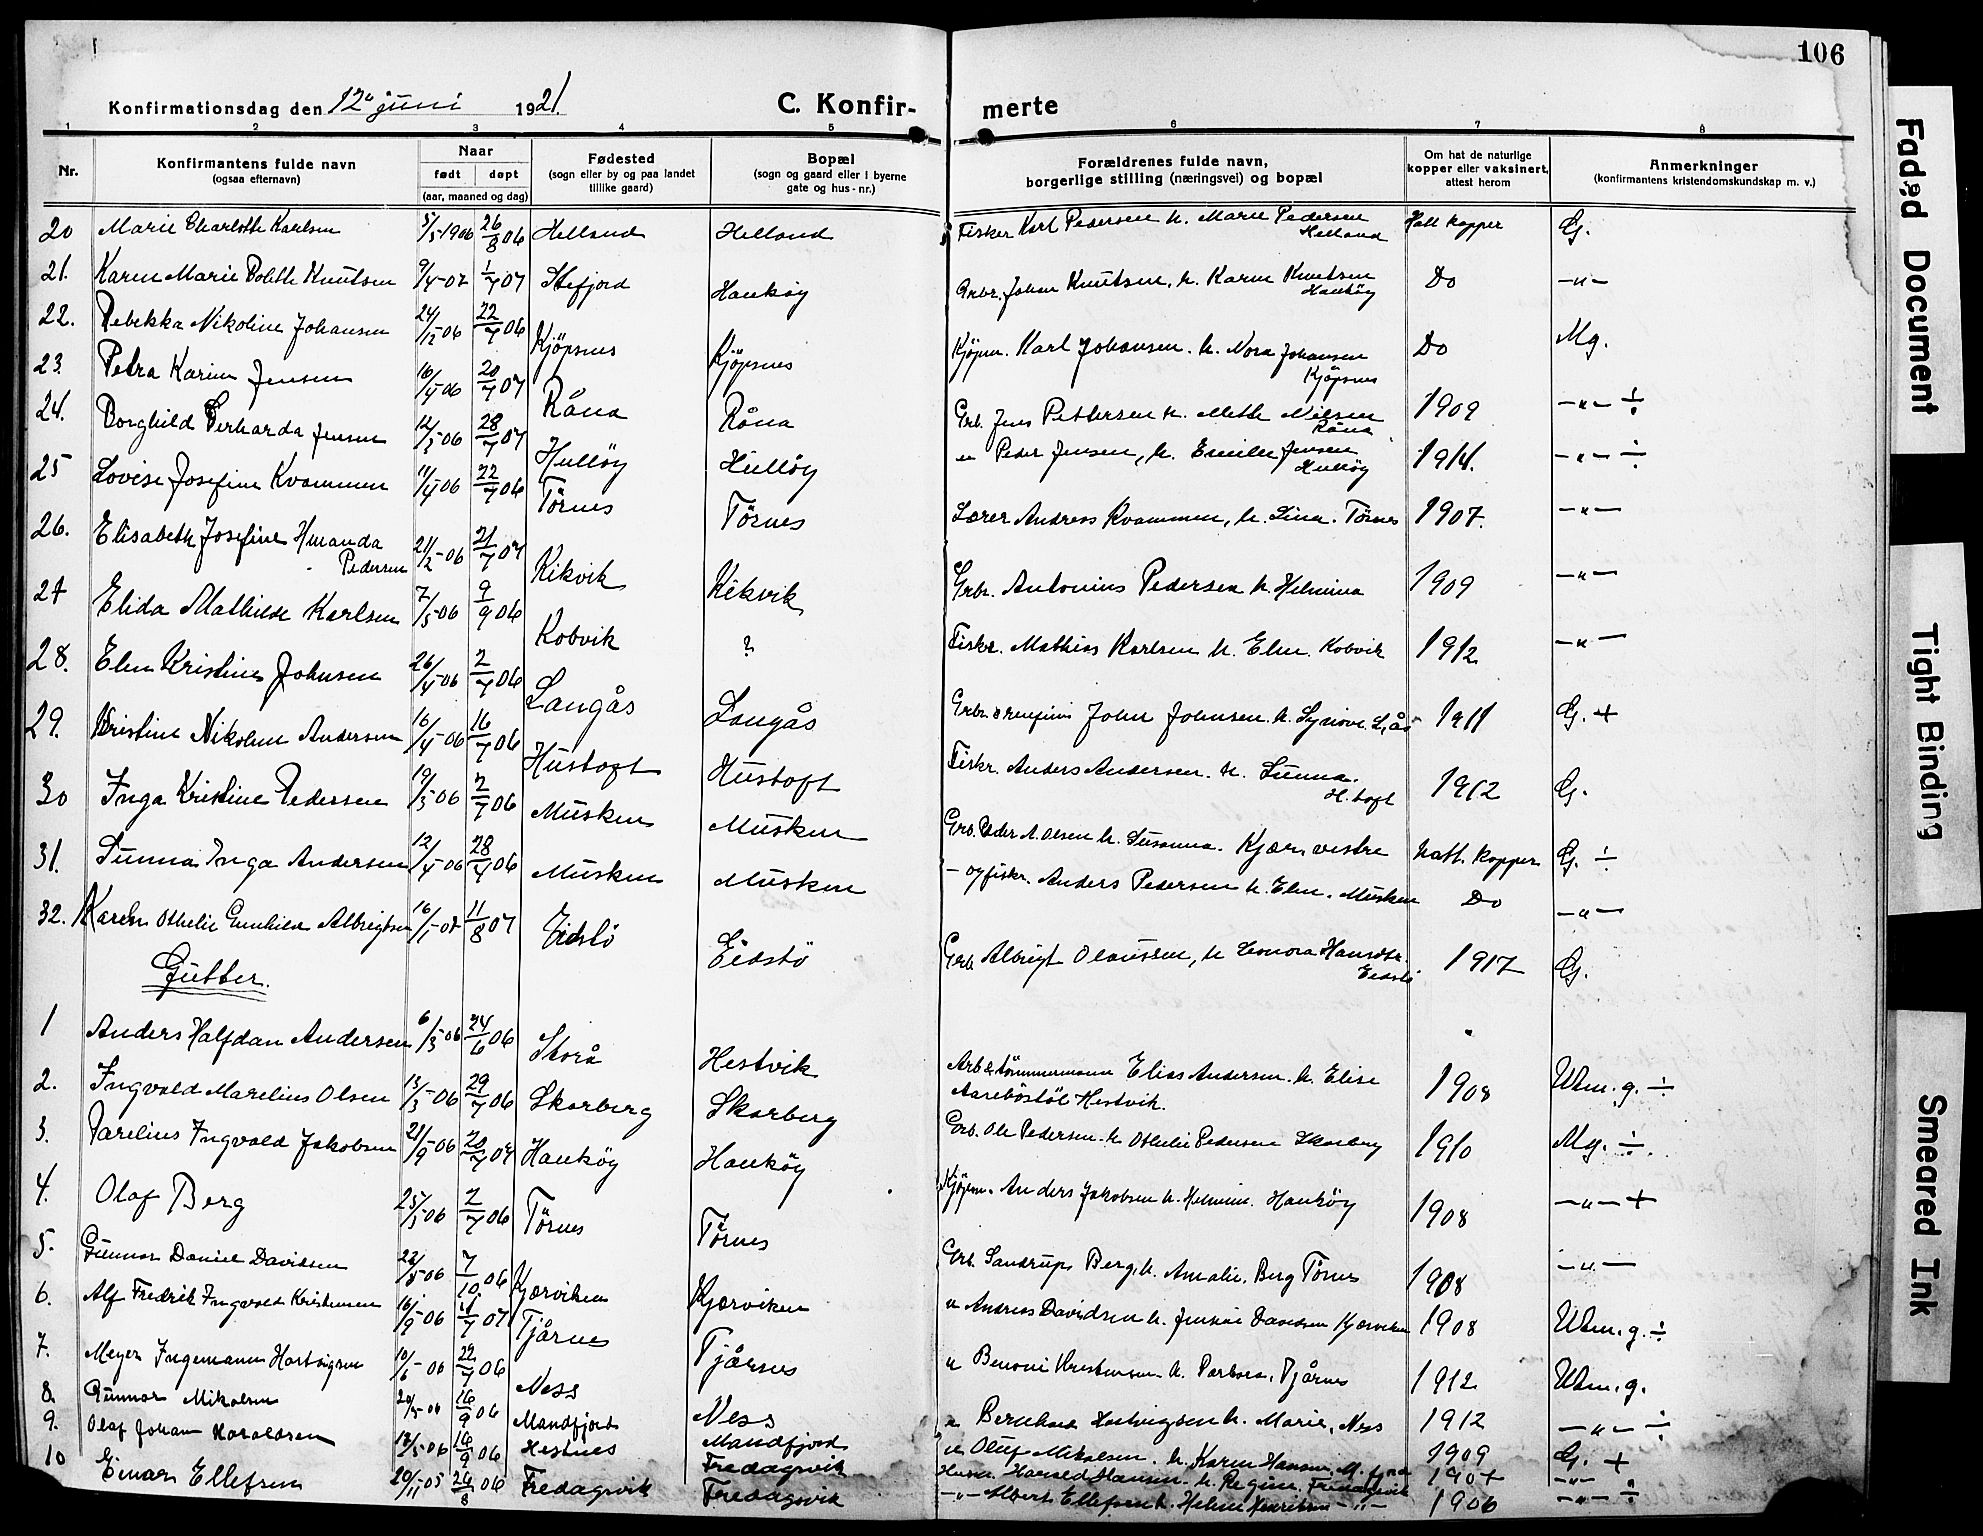 106
Konfirmationsdag den 12 juni 1921.
C. Konfirmerte
1 2 3 4 5 6 7 8
Nr.
Konfirmantens fulde navn
(ogsaa efternavn)
Naar
født døpt
(aar, maaned og dag)
Fødested
(sogn eller by og paa landet
tillike gaard)
Bopæl
(sogn og gaard eller i byerne
gate og hus-nr.)
Forældrenes fulde navn,
borgerlige stilling (næringsvei) og bopæl
Om hat de naturlige
kopper eller vaksinert,
attest herom
Anmerkninger
(konfirmantens kristendomskundskap m. v.)
20 Marie Charlotte Karlsen 5/5-1906 26/8 06 Helland Helland Fisker Karl Pedersen h. Marie Pedersen Helland Hatt kopper G.
21. Karen Marie Bolette Knutsen 9/4-07 1/7 07 Stefjord Haukøy Grbr. Johan Knutsen, h. Karen Knutsen Haukøy Do -"-
22. Rebekka Nikoline Johansen 24/12-06 22/7 06 Kjöpsnes Kjöpsnes Kjöpm. Karl Johansen. h. Nora Johansen Kjöpsnes Do Mg.
23. Petra Karine Jensen 16/4-06 20/7 07 Råna Råna Grb. Jens Pettersen h. Mette Nilsen Råna 1909 -"- ÷
24. Borghild Gerharda Jensen 12/3-06 28/7 07 Hulløy Hulløy " Peder Jensen, h. Emilie Jensen Hulløy 1914. -"- ÷
25 Lovise Josefine Kvammen 11/4-06 22/7 06 Törnes Törnes Lærer Andreas Kvammen, h. Lina. Törnes 1907. -"-
26. Elisabeth Josefine Amanda Pedersen 21/2-06 21/7 07 Kikvik Kikvik Grbr. Antonius Pedersen h. Helmina 1909 -"-
27 Elida Mathilde Karlsen 7/5-06 9/9 06 Kobvik ? Fiskr. Mathias Karlsen h. Elen. Kobvik 1912 -"-
28. Elen Kristine Johnsen 26/4-06 2/7 06 Langås Langås John Johnsen. h. Synove. L,ås 1911 G. +
29. Kristine Nikoline Andersen 16/4-06 16/7 06 Hustoft Hustoft Fiskr. Anders Andersen. h. Sunna. H.toft 1912 G.
30 Inga Kristine Pedersen 19/3-06 2/7 06 Musken Musken Grb. Peder A. Olsen h. Susanna. Kjær vestre Natt. kopper G. ÷
31. Sunna Inga Andersen 12/4-06 28/7 06 Musken Musken - og fiskr. Anders Pedersen h. Elen. Musken Do -"-
32. Karen Othelie Gunhild Albrigtsen 16/1-07 11/8 07 Eidstö Eidstö Grb. Albrigt Olaussen, h Leonora Hansdtr. Eidstö 1917 G.
Gutter.
1 Anders Halfdan Andersen 6/3-06 24/6 06 Storå Hestvik Arb & tömmermann Elias Andersen. h. Elise Hestvik. 1908 Utm. g. ÷
2. Ingvald Marelius Olsen 13/3-06 29/7 06 Skarberg Skarberg Grb. Ole Pedersen. h Othelie Pedersen Skarberg 1910 Mg. ÷.
3. Parelius Ingvald Jakobsen 21/9-06 20/7 07 Haukøy Haukøy Kjöpm. Anders Jakobsen h. Helmine. Haukøy 1908 -"- +
4. Olaf Berg 25/3-06 2/7 06 Törnes Törnes Grb. Sandrup Berg, h. Amalie. Berg Törnes 1908 -"-
5. Gunnar Daniel Davidsen 22/8-06 7/10 06 Kjærviken Kjærviken " Andreas Davidsen h. Jensine Davidsen Kjærviken 1908 Utm. g. ÷
6. Alf Fredrik Ingvald Kristensen 16/9-06 21/7 07 Tjårnes Tjårnes " Benoni Kristensen h. Barbara, Tjårnes 1912 Utm. g.
7. Meyer Ingemann Hartvigsen 10/6-06 22/7 06 Ness Ness " Bernhard Hartvigsen h. Marie, Ness 1912 -"- ÷
8. Gunnar Mikalsen 20/5-06 16/9 06 Mandfjord Mandfjord " Oluf Mikalsen. h. Karen Hansen, M. fjord 1909 G. +
9. Olaf Johan Haraldsen 13/5-06 16/9 06 Hestnes Fredagsvik Husm. Harald Hansen h. Regine, Fredagsvik 1907 -"-
10 Einar Ellefsen 20/11-05 26/8 06 Fredagsvik Fredagsvik -"- Albert Ellefsen h. Helene Henriksen -"- 1906 -"- ÷
Faded Document
Tight Binding
Smeared Ink